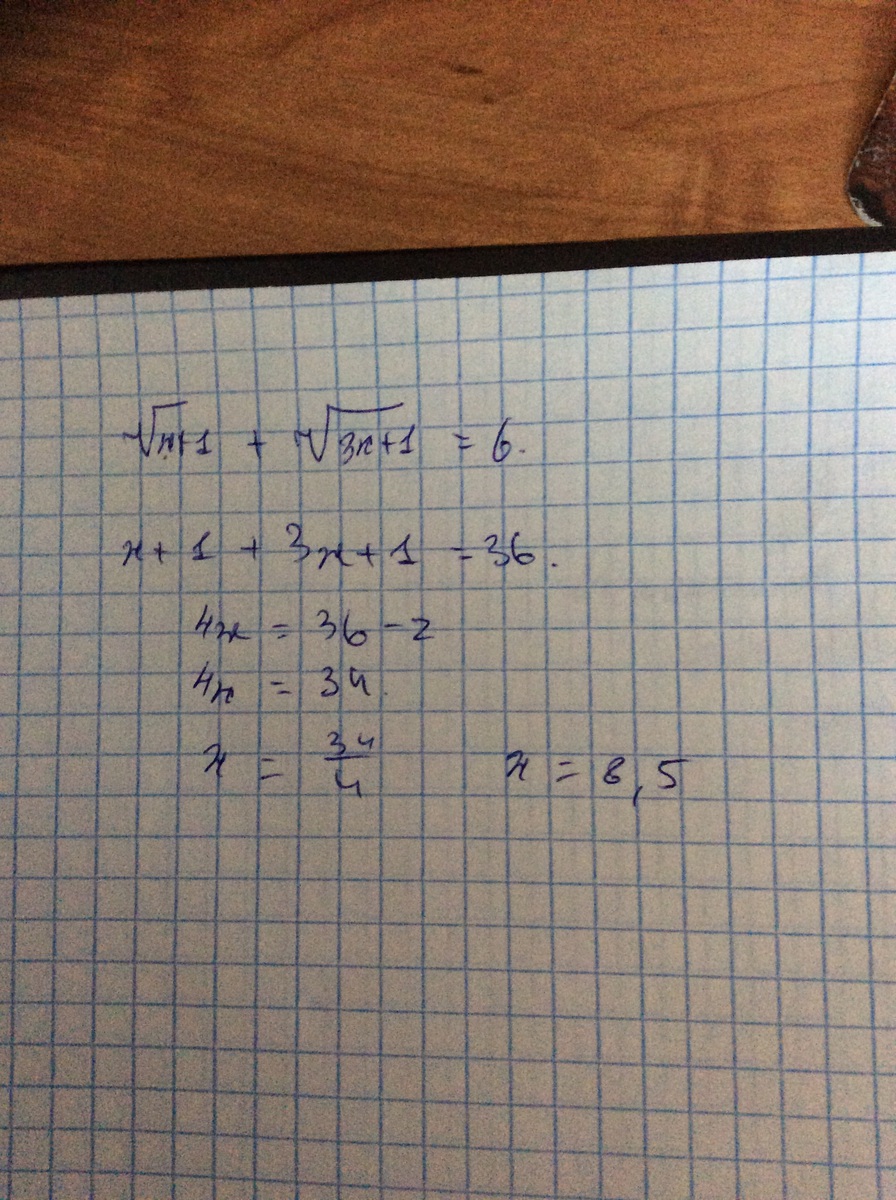 √x+1 + √3x+1 = 6.
x+1 + 3x+1 = 36.
4x = 36-2
4x = 34.
x = 34/4 x = 8,5